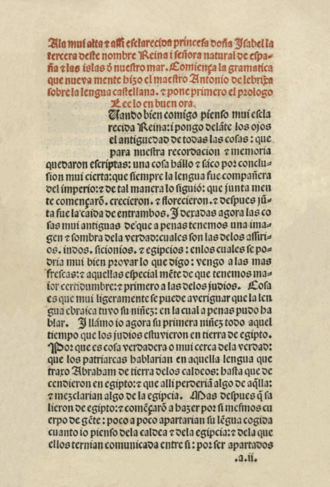 A la mui alta ⁊ assi esclarecida princesa doña Isabel la
tercera deste nombre Reina i señora natural de espa-
ña ⁊ las islas de nuestro mar. Comiença la gramatica
que nueva mente hizo el maestro Antonio de lebrixa
sobre la lengua castellana. ⁊ pone primero el prologo
Lee lo en buen ora.
Uando bien comigo pienso mui escla
recida Reina: i pongo delāte los ojos
el antiguedad de todas las cosas: que
para nuestra recordacion ⁊ memoria
quedaron escriptas: una cosa hállo ⁊ saco por conclu
sion mui cierta: que siempre la lengua fue compañera
del imperio: ⁊ de tal manera lo siguió: que junta men
te començarō. crecieron. ⁊ florecieron. ⁊ despues jū
ta fue la caida de entrambos. I dexadas agora las co
sas mui antiguas de que a penas tenemos una ima-
gen ⁊ sombra de la verdad: cuales son las de los assiri
os. indos. sicionios. ⁊ egipcios: enlos cuales se po
dria mui bien provar lo que digo: vengo a las mas
frescas: ⁊ aquellas especial mēte de que tenemos ma-
ior certidumbre: ⁊ primero a las delos judios. Cosa
es que mui ligera mente se puede averiguar que la len
gua ebraica tuvo su niñez: en la cual a penas pudo ha
blar. I llámo io agora su primera niñez todo aquel
tiempo que los judios estuvieron en tierra de egipto.
Por que es cosa verdadera o mui cerca dela verdad:
que los patriarcas hablarian en aquella lengua que
traxo Abraham de tierra delos caldeos: hasta que de
cendieron en egipto: ⁊ que alli perderian algo de aq̄lla:
⁊ mezclarian algo dela egipcia. Mas despues q̄ sa
lieron de egipto: ⁊ comēçarō a hazer por si mesmos cu
erpo de gēte: poco a poco apartarian su lēgua cogida
cuanto io pienso dela caldea ⁊ dela egipcia: ⁊ dela que
ellos ternian comunicada entre si: por ser apartados
.a.ii.